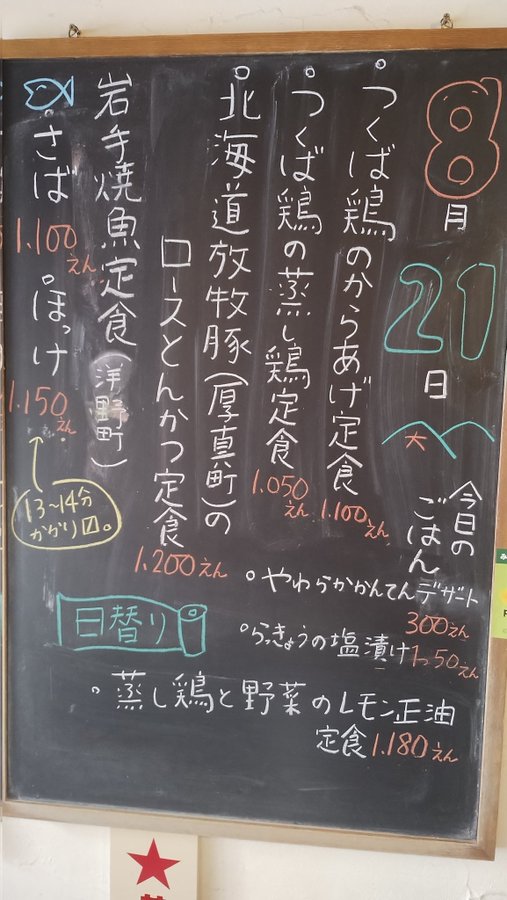 8月
21日
火
今日の
ごはん
。つくば鶏のからあげ定食
1.100えん
。つくば鶏の蒸し鶏定食
1.050えん
。北海道放牧豚(厚真町)の
ロースとんかつ定食
1.200えん
岩手焼魚定食(洋野町)
。さば
1.100えん
。ほっけ
1.150えん
13〜14分
かかり〼。
。やわらかかんてんデザート
300えん
。らっきょうの塩漬け 150えん
日替り
。蒸し鶏と野菜のレモン正油
定食 1.180えん